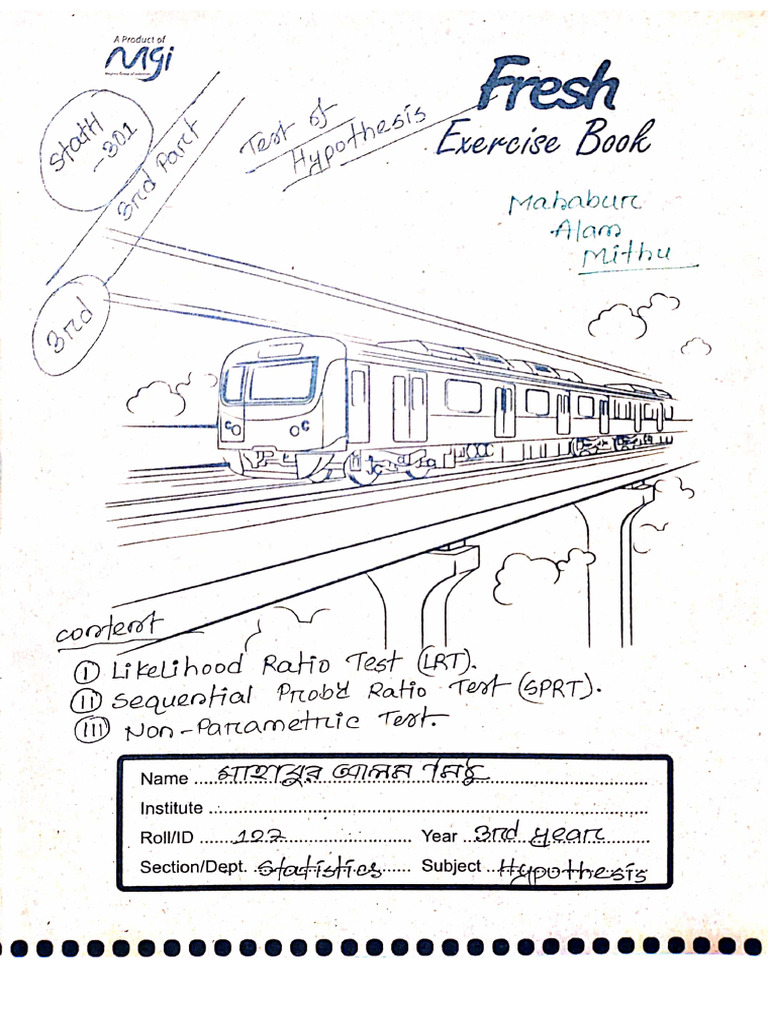 A Product of
mgi
Fresh
Exercise Book
StatH
-301
3rd Part
Test of
Hypothesis
Mahabur
Alam
Mithu
3rd
content
(I) Likelihood Ratio Test (LRT).
(II) Sequential Prob'd Ratio Test (SPRT).
(III) Non-Parametric Test.
Name মাহাবুর আলম মিঠু
Institute
Roll/ID 122 Year 3rd year
Section/Dept. Statistics Subject Hypothesis